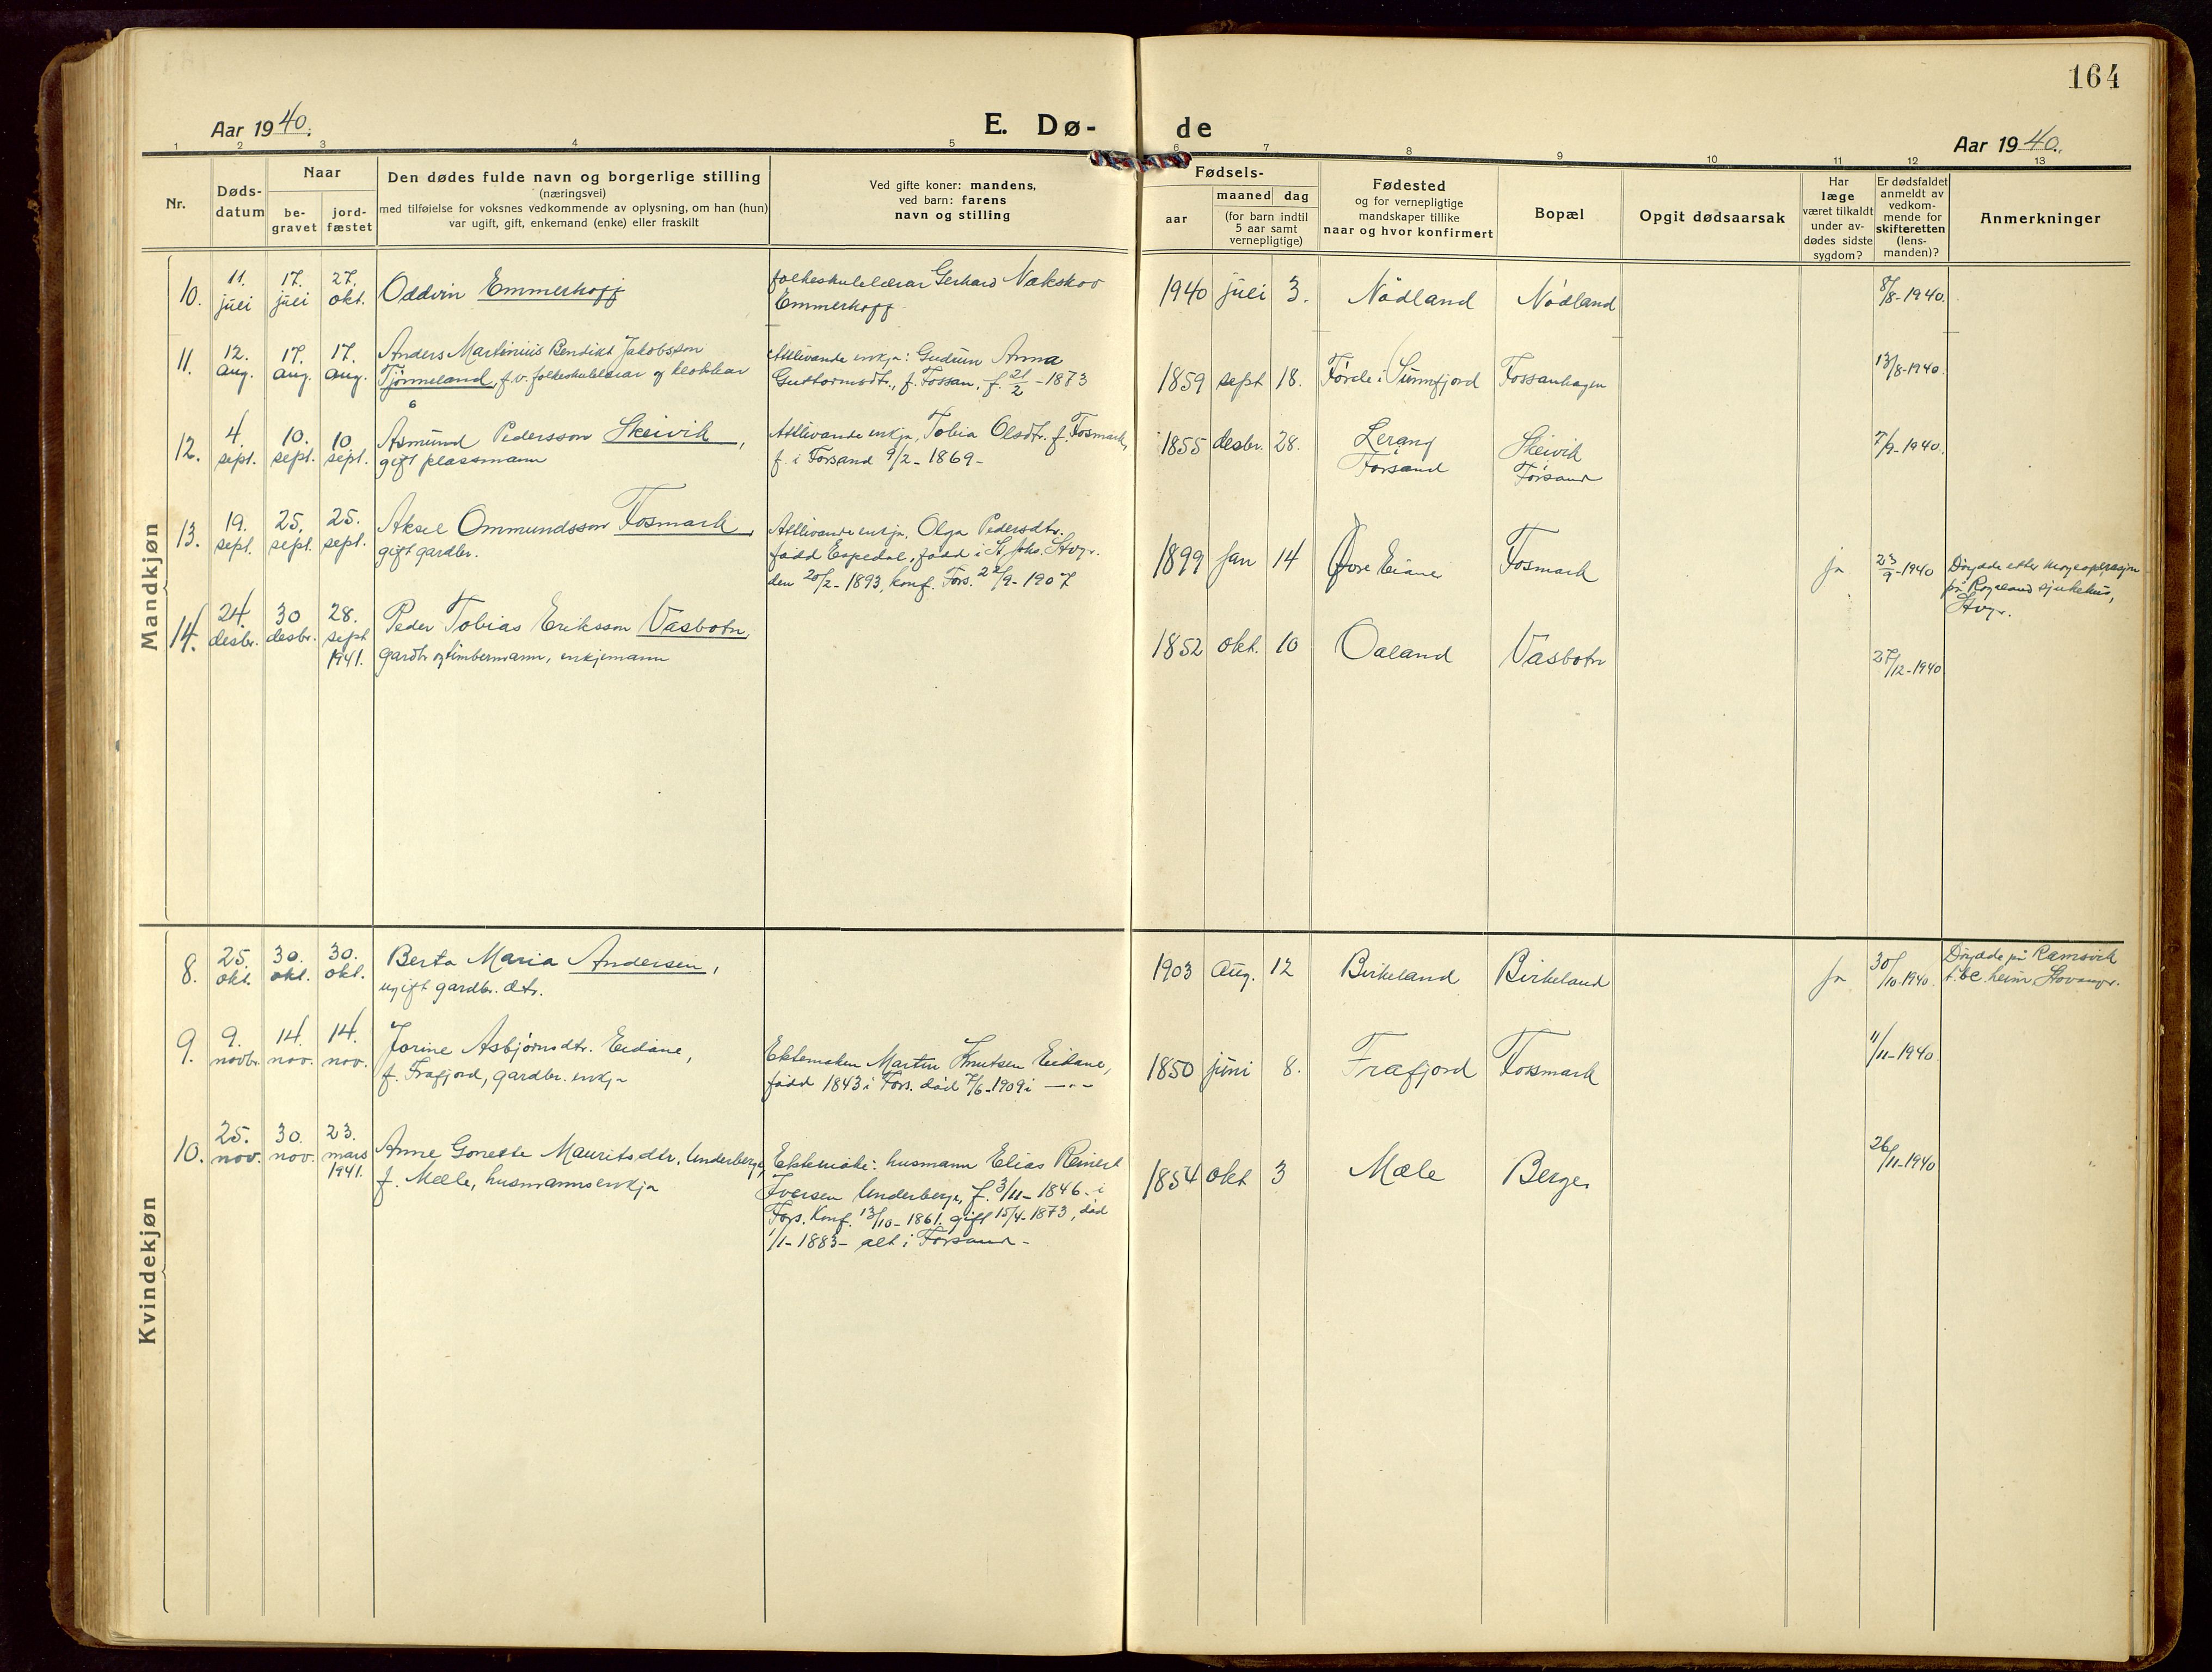 164
Aar 1940.
E. Dø-
de
Aar 1940.
1 2 3 4 5 6 7 8 9 10 11 12 13
Nr.
Døds-
datum
Naar
be-
gravet
jord-
fæstet
Den dødes fulde navn og borgerlige stilling
(næringsvei)
med tilføielse for voksnes vedkommende av oplysning, om han (hun)
var ugift, gift, enkemand (enke) eller fraskilt
Ved gifte koner: mandens,
ved barn: farens
navn og stilling
Fødsels-
aar
maaned dag
(for barn indtil
5 aar samt
vernepligtige)
Fødested
og for vernepligtige
mandskaper tillike
naar og hvor konfirmert
Bopæl
Opgit dødsaarsak
Har
læge
været tilkaldt
under av-
dødes sidste
sygdom?
Er dødsfaldet
anmeldt av
vedkom-
mende for
skifteretten
(lens-
manden)?
Anmerkninger
Mandkjøn
10.
11.
juli
17.
juli
27.
okt.
Oddvin Emmerhoff
folkeskulelærar Gerhard Nakskov
Emmerhoff
1940 juli 3.
Nådland
Nådland
8/8-1940.
11.
12.
aug.
17.
aug.
17.
aug.
Anders Martinius Bendikt Jakobsson
Tjønneland, f.v. folkeskulelærar og klokkar
Attlivande enkja: Gudrun Anna
Guttormsdtr., f. Fossan, f. 21/2-1873
1859 sept 18.
Førde i Sunnfjord
Fossanhagen
13/8-1940.
12.
4.
sept.
10.
sept.
10
sept.
Asmund Pedersson Skeivik,
gift plassmann
Attlivande enkja, Tobia Olsdtr. f. Fosmark,
f. i Forsand 9/2-1869-
1855 desbr. 28.
Lerang
Forsand
Skeivik
Forsand
7/9-1940.
13.
19.
sept.
25.
sept.
25.
sept.
Aksel Ommundsson Fosmark,
gift gardbr.
Attlivande enkja, Olga Pedersdtr.
fødd Espedal, fødd i St. Joh. Stvgr.
den 20/2-1893, konf. Fors. 22/9-1907
1899 jan 14
Øvre Eiane
Fosmark
ja
23/9-1940
Døydde etter
på Rogaland sjukehus,
Stvgr.
14.
24.
desbr.
30
desbr.
28.
sept
1941.
Peder Tobias Eriksson Vasbotn,
gardbr og timbermann, enkjemann
1852 okt. 10
Oaland
Vasbotn
27/12-1940
Kvindekjøn
8.
25.
okt.
30.
okt.
30.
okt.
Berta Maria Andersen,
ugift gardbr. dtr.
1903 aug. 12
Birkeland
Birkeland
ja
30/10-1940.
Døydde på Ramsvik
t.b.c. heim Stavangr.
9.
9.
novbr.
14.
nov.
14.
nov.
Jorine Asbjørnsdtr. Eidane,
f. Frafjord, gardbr. enkja
Ektemaken Martin Knutsen Eidane,
fødd 1843 i Fors. død 7/6-1909 i —"—
1850 juni 8.
Frafjord
Fossmark
11/11-1940.
10.
25.
nov.
30.
nov.
23.
mars
1941.
Anne Gonette Mauritsdtr. Underberge,
f. Mæle, husmannsenkja
Ektemake: husmann Elias Reinert
Iversen Underberge, f. 3/11-1846 i
Fors. Konf. 13/10-1861. gift 15/4-1873, død
1/1-1883- alt i Forsand-
1854 okt 3
Mæle
Berge
26/11-1940